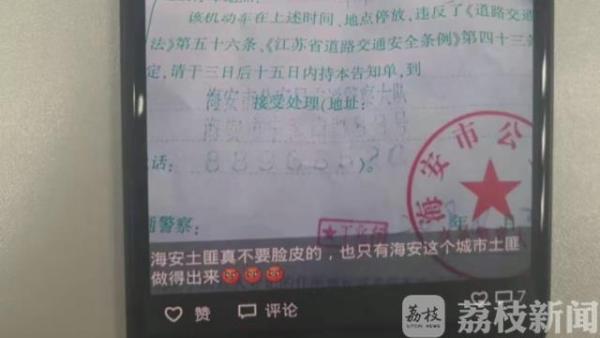 该机动车在上述时间、地点停放,违反了《道路交通
法》第五十六条、《江苏省道路交通安全条例》第四十三条
定,请于三日后十五日内持本告知单,到
海安市公安局交通警察大队
接受处理(地址:
海安市
号
话:
)。
通警察:
海安市公
海安土匪真不要脸皮的,也只有海安这个城市土匪
做得出来
赞
评论
7
荔枝
荔枝新闻